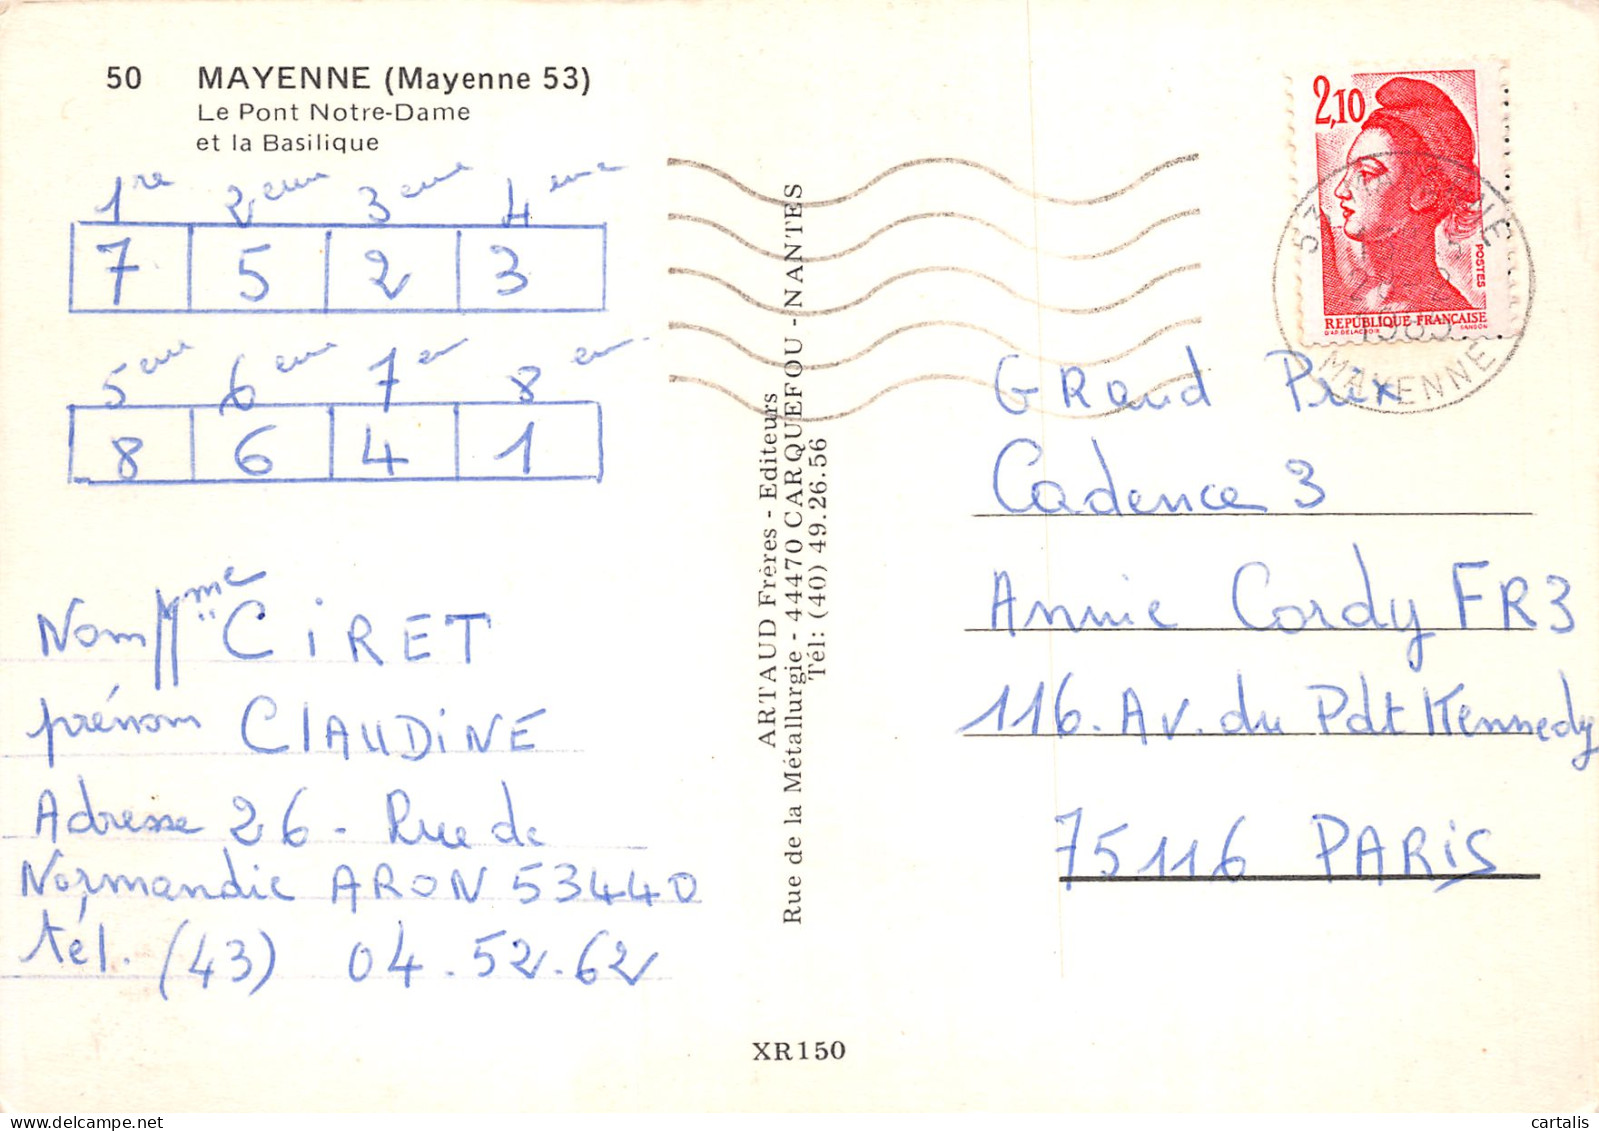 50 MAYENNE (Mayenne 53)
Le Pont Notre-Dame
et la Basilique
1re 2eme 3eme 4eme
7 5 2 3
5eme 6eme 7em 8em
8 6 4 1
Nom Mme CiRET
prénom ClAUDiNE
Adresse 26 - Rue de
Normandie ARON 53440
tél. (43) 04.52.62
ARTAUD Frères - Editeurs
Rue de la Métallurgie - 44470 CARQUEFOU - NANTES
Tél: (40) 49.26.56
XR150
2,10
POSTES
REPUBLIQUE FRANÇAISE
D'AP. DELACROIX GANDON
53 MAYENNE
MAYENNE
GRand Prix
Cadence 3
Annie Cordy FR3
116. Av. du Pdt Kennedy
75116 PARiS
cartalis